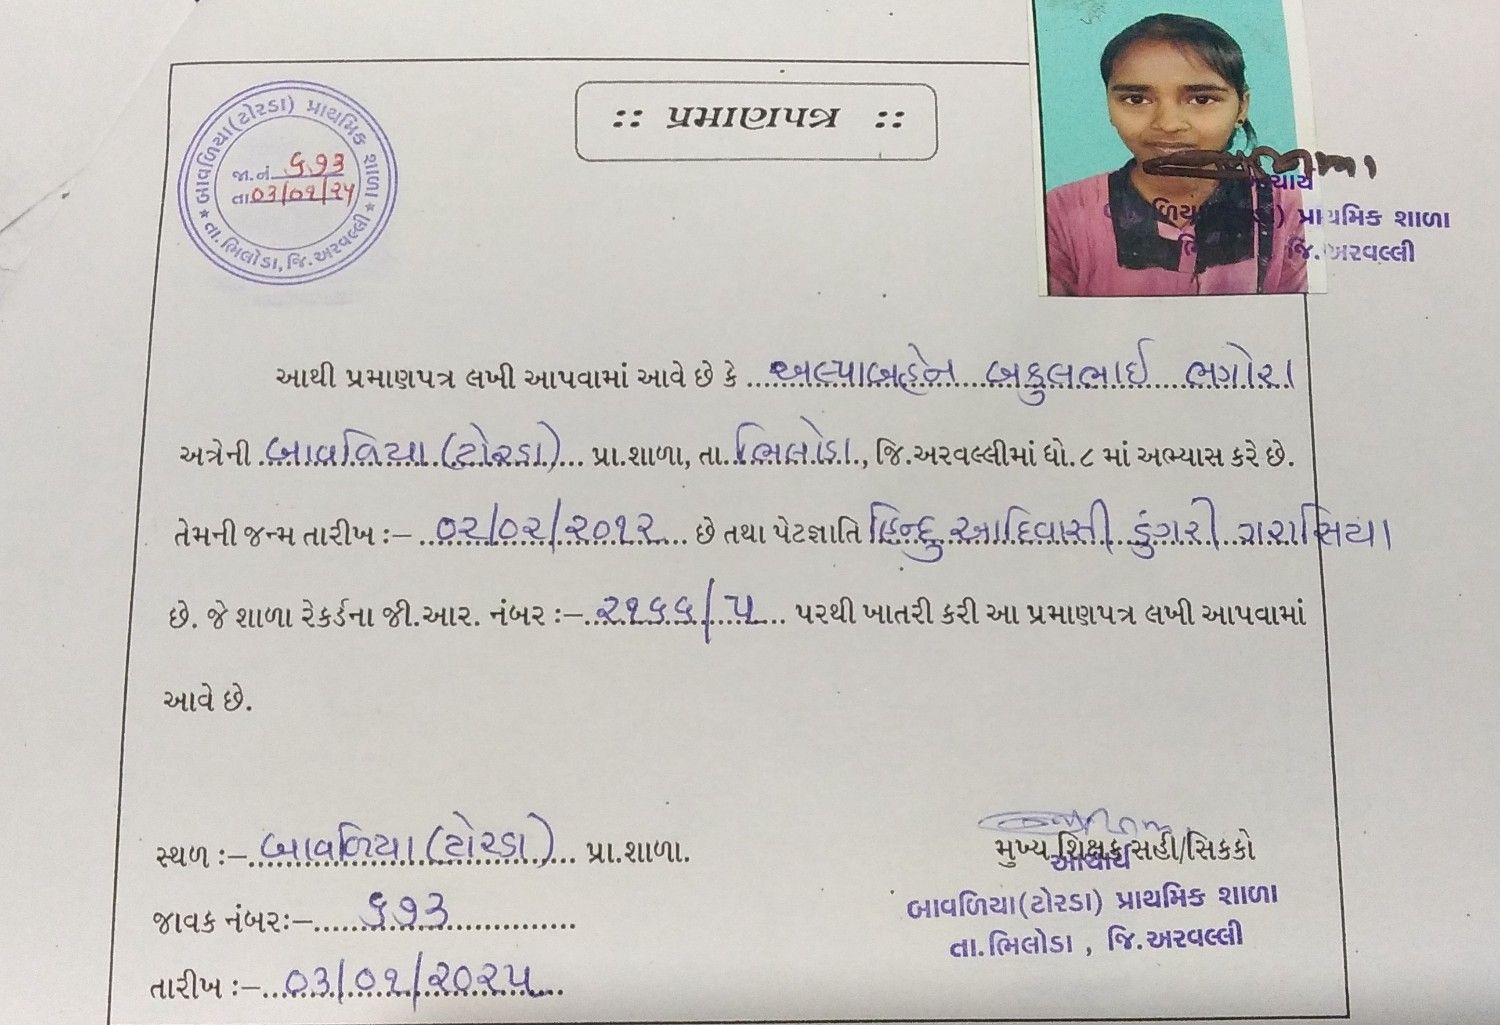 બાવળિયા(ટોરડા) પ્રાથમિક શાળા
જા.નં. ૬૭૩
તા.૦૩/૦૧/૨૫
તા.ભિલોડા, જિ.અરવલ્લી
:: પ્રમાણપત્ર ::
પ્રાયમિક શાળા
જિ.અરવલ્લી
આથી પ્રમાણપત્ર લખી આપવામાં આવે છે કે અલ્પાબહેન બકુલભાઈ ભગોરા
અત્રેની બાવળિયા (ટોરડા) પ્રા.શાળા, તા. ભિલોડા, જિ.અરવલ્લીમાં ધો.૮ માં અભ્યાસ કરે છે.
તેમની જન્મ તારીખ :- ૦૨/૦૨/૨૦૧૨ છે તથા પેટજ્ઞાતિ હિન્દુ આદિવાસી ડુંગરી ગરાસિયા
છે. જે શાળા રેકર્ડના જી.આર. નંબર :- ૨૧૬૬/૫ પરથી ખાતરી કરી આ પ્રમાણપત્ર લખી આપવામાં
આવે છે.
સ્થળ :- બાવળિયા (ટોરડા) પ્રા.શાળા.
મુખ્ય શિક્ષક સહી/સિક્કો
આચાર્ય
જાવક નંબર:- ૬૭૩
બાવળિયા(ટોરડા) પ્રાથમિક શાળા
તા.ભિલોડા , જિ.અરવલ્લી
તારીખ :- ૦૩/૦૧/૨૦૨૫